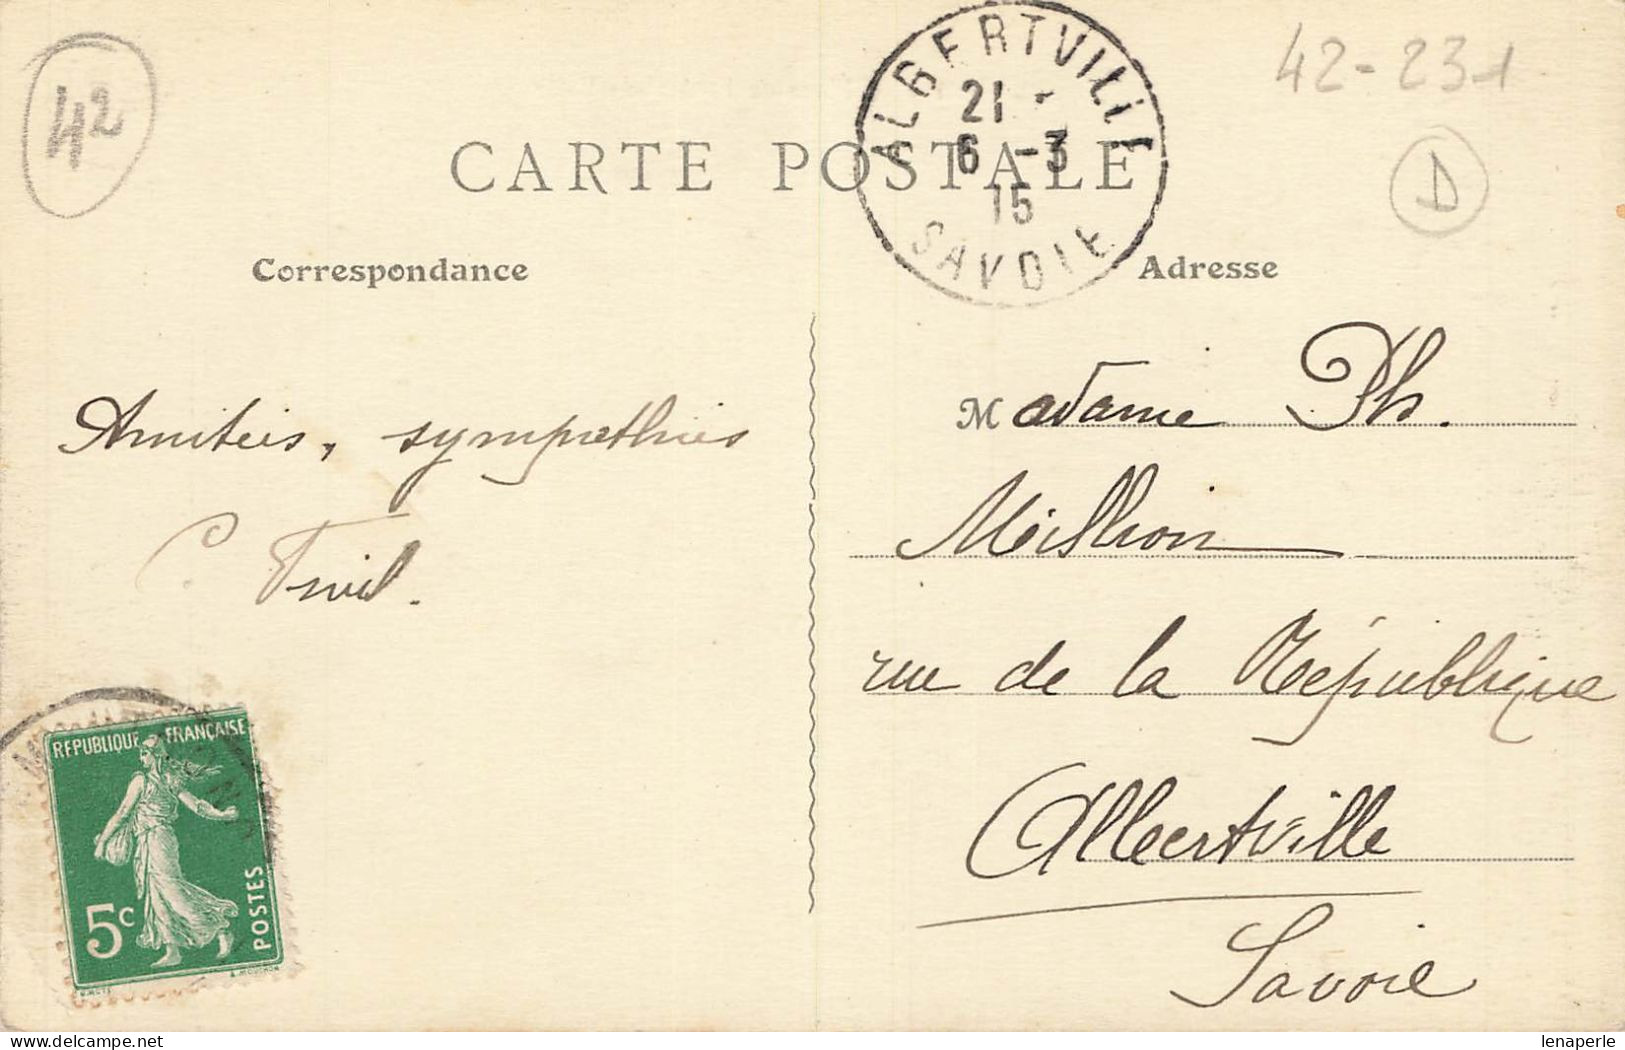 42
42-231
D
CARTE POSTALE
ALBERTVILLE
21
6 -3
15
SAVOIE
Correspondance
Adresse
Amitiés, sympathies
Madame Ph.
rue de la République
Albertville
Savoie
REPUBLIQUE FRANÇAISE
5c
POSTES
lenaperle